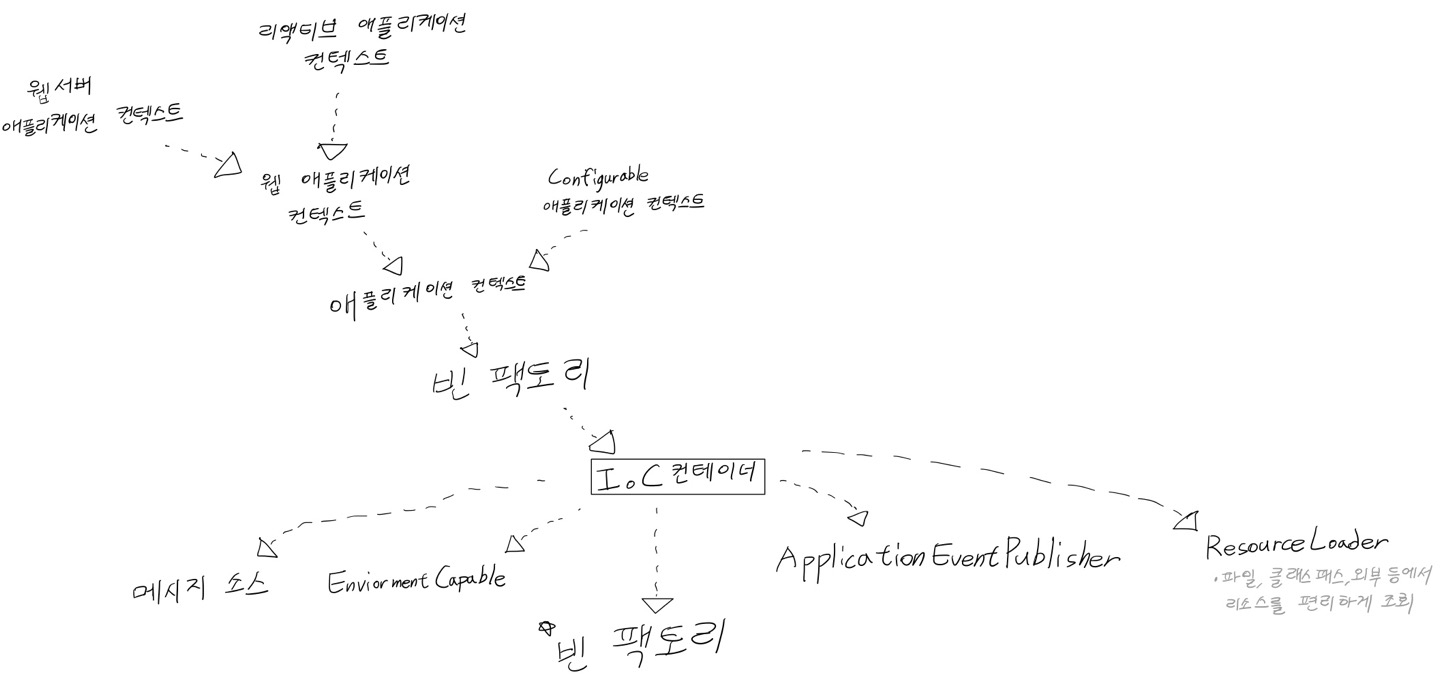 리액티브 애플리케이션
컨텍스트
웹서버
애플리케이션 컨텍스트
웹 애플리케이션
컨텍스트
Configurable
애플리케이션 컨텍스트
애플리케이션 컨텍스트
빈 팩토리
IoC 컨테이너
메시지 소스
EnviormentCapable
빈 팩토리
ApplicationEventPublisher
ResourceLoader
·파일, 클래스패스, 외부 등에서
리소스를 편리하게 조회